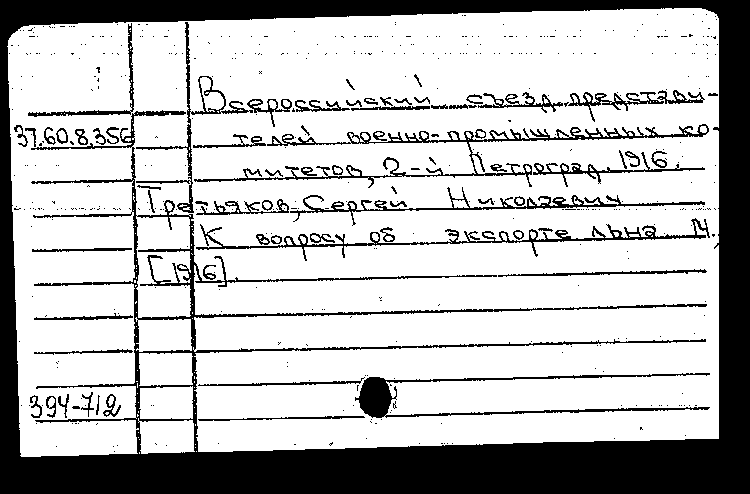 Всероссийский съезд представи-
37.60.8.356 телей военно-промышленных ко-
митетов, 2-й Петроград. 1916.
Третьяков, Сергей Николаевич
К вопросу об экспорте льна. М.,
[1916].
394-712